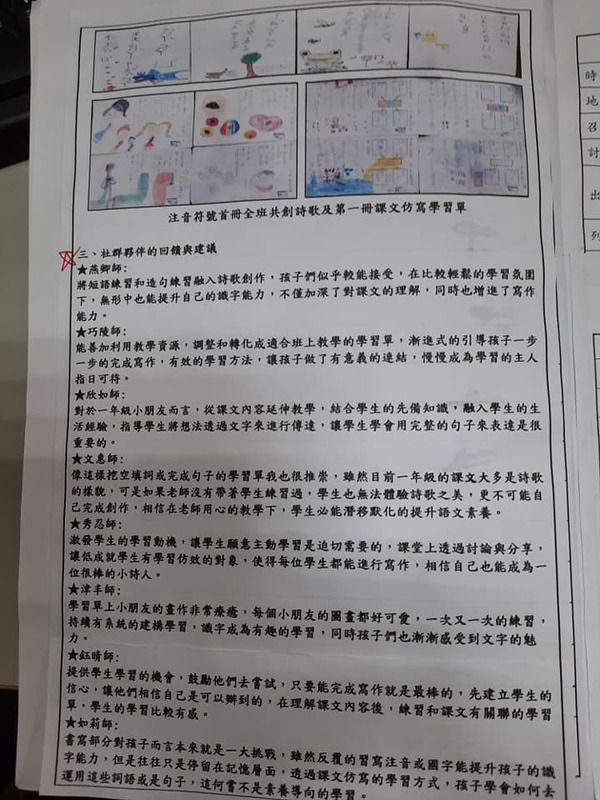 注音符號首冊全班共創詩歌及第一冊課文仿寫學習單
三、社群夥伴的回饋與建議
★燕卿師:
將短語練習和造句練習融入詩歌創作，孩子們似乎較能接受，在比較輕鬆的學習氛圍
下，無形中也能提升自己的識字能力，不僅加深了對課文的理解，同時也增進了寫作
能力。
★巧陵師:
能善加利用教學資源，調整和轉化成適合班上教學的學習單，漸進式的引導孩子一步
一步的完成寫作，有效的學習方法，讓孩子做了有意義的連結，慢慢成為學習的主人
指日可待。
★欣如師:
對於一年級小朋友而言，從課文內容延伸教學，結合學生的先備知識，融入學生的生
活經驗，指導學生將想法透過文字來進行傳達，讓學生學會用完整的句子來表達是很
重要的。
★文惠師:
像這樣挖空填詞或完成句子的學習單我也很推崇，雖然目前一年級的課文大多是詩歌
的樣貌，可是如果老師沒有帶著學生練習過，學生也無法體驗詩歌之美，更不可能自
己完成創作，相信在老師用心的教學下，學生必能潛移默化的提升語文素養。
★秀忍師:
激發學生的學習動機，讓學生願意主動學習是迫切需要的，課堂上透過討論與分享，
讓低成就學生有學習仿效的對象，使得每位學生都能進行寫作，相信自己也能成為一
位很棒的小詩人。
★津丰師:
學習單上小朋友的畫作非常療癒，每個小朋友的圖畫都好可愛，一次又一次的練習，
持續有系統的建構學習，識字成為有趣的學習，同時孩子們也漸漸感受到文字的魅
力。
★鈺晴師:
提供學生學習的機會，鼓勵他們去嘗試，只要能完成寫作就是最棒的，先建立學生的
信心，讓他們相信自己是可以辦到的，在理解課文內容後，練習和課文有關聯的學習
單，學生的學習比較有感。
★如莉師:
書寫部分對孩子而言本來就是一大挑戰，雖然反覆的習寫注音或國字能提升孩子的識
字能力，但是往往只是停留在記憶層面，透過課文仿寫的學習方式，孩子學會如何去
運用這些詞語或是句子，這何嘗不是素養導向的學習。
時
地
召
討
出
列